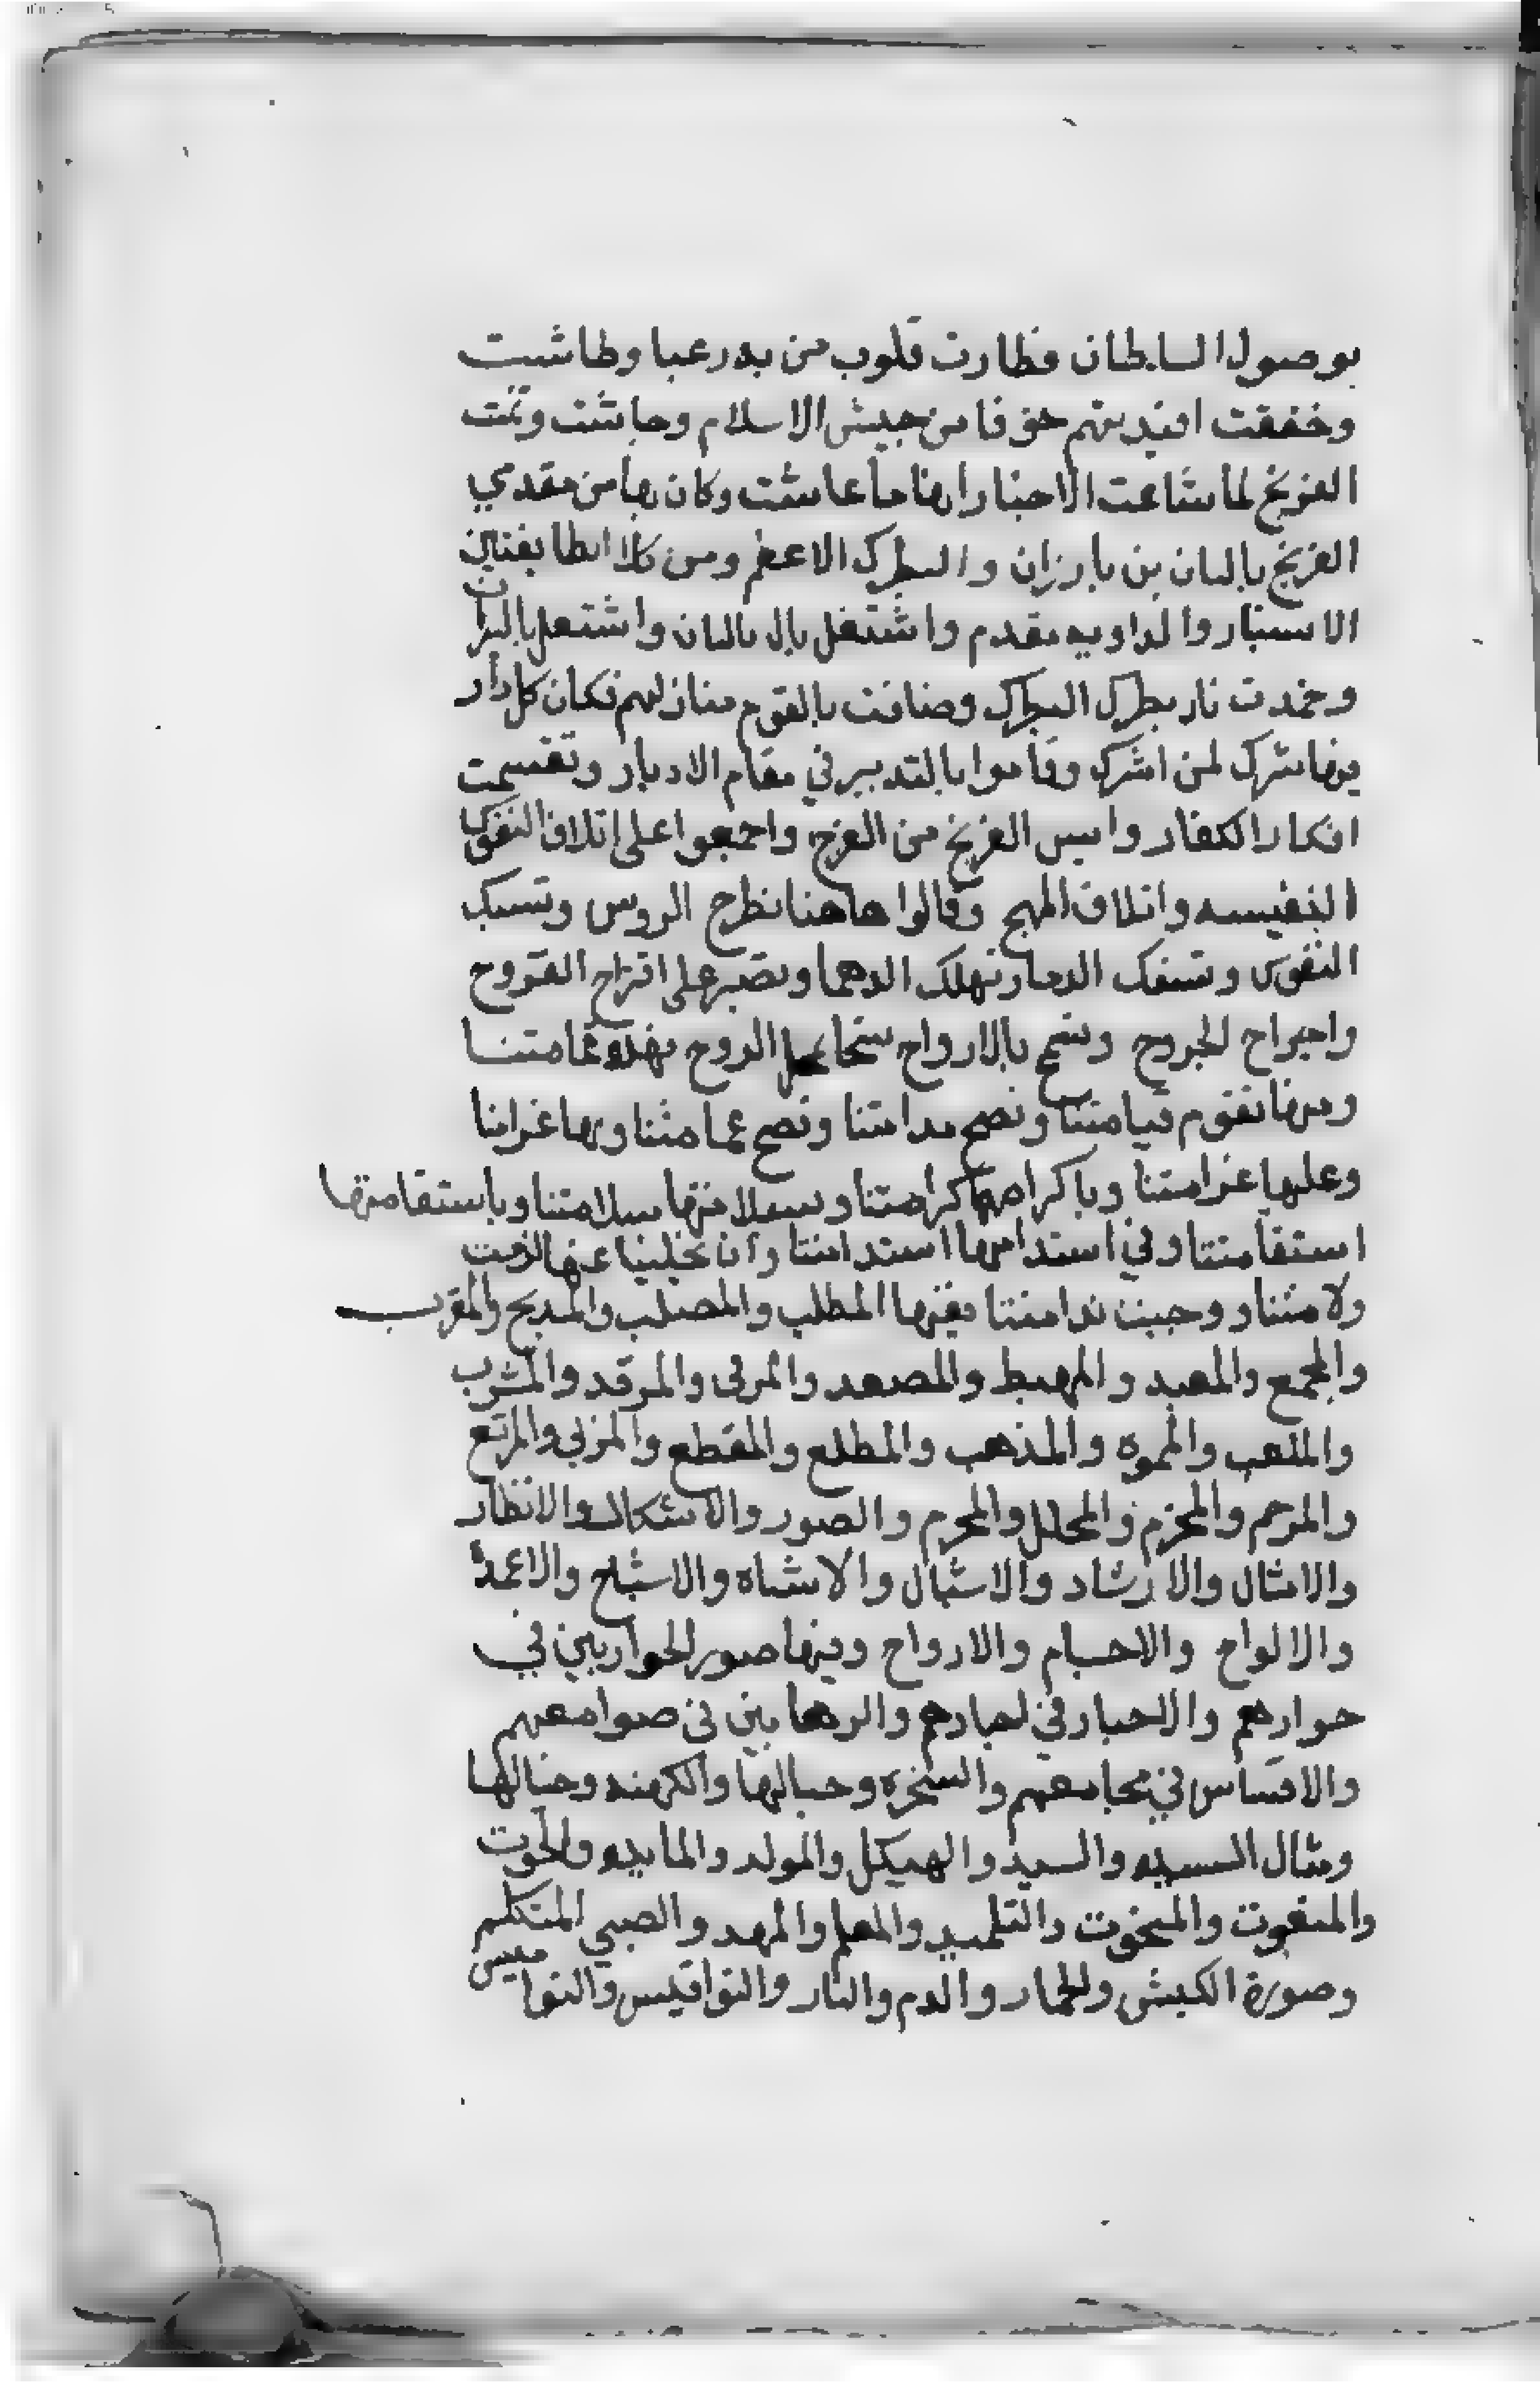 بوصول السلطان فطارت قلوب من به رعبا وطاشت
وخفقت افيدتهم خوفا من جيش الاسلام وجاشت وتمنت
الفرنج لما شاعت الاخبار انها ما عاشت وكان بها من مقدمي
الفرنج باليان بن بارزان والبطرك الاعظم ومن كلا الطايفتين
الاسبتار والداويه مقدم واشتغل بال باليان واشتعل بالنيران
وخمدت نار بطرك البطرك وضاقت بالقوم منازلهم فكان كل دار
فيها شرك لمن اشرك وقاموا بالتدبير في مقام الادبار وتقسمت
افكار الكفار وايس الفرنج من الفرج واجمعوا على اتلاف النفوس
النفيسه واتلاف المهج وقالوا هاهنا نطرح الروس وتسبك
النفوس وتسفك الدما وتهلك الدهما ونصبر على اقتراح القروح
واجتراح الجروح ونسمح بالارواح شحا بمحل الروح فهذه قمامتنا
وفيها تقوم قيامتنا وتصح ندامتنا وتصح عمامتنا وبها غرامنا
وعليها غرامتنا وباكرامها كرامتنا وبسلامتها سلامتنا وباستقامتها
استقامتنا وفي استدامتها استدامتنا وان تخلينا عنها لزمت
ولامتنا ووجبت ندامتنا ففيها المطلب والمصلب والمذبح والمقرب
والمجمع والمعبد والمهبط والمصعد والمرقى والمرقد والمشرب
والملعب والمموه والمذهب والمطلع والمقطع والمربي والمرتع
والمرخم والمخرم والمحلل والمحرم والصور والاشكال والانظار
والامثال والارشاد والاشبال والاشباه والاشباح والاعمدة
والالواح والاجسام والارواح وفيها صور الحواريين في
حوارهم والاحبار في احبارهم والرهابين في صوامعهم
والاقساس في مجامعهم والسخره وحبالها والكهنه وخيالها
ومثال السيده والسيد والهيكل والمولد والمايده والحوت
والمنعوت والمنحوت والتلميذ والمعلم والمهد والصبي المتكلم
وصورة الكبش والحمار والدم والنار والنواقيس والنواميس